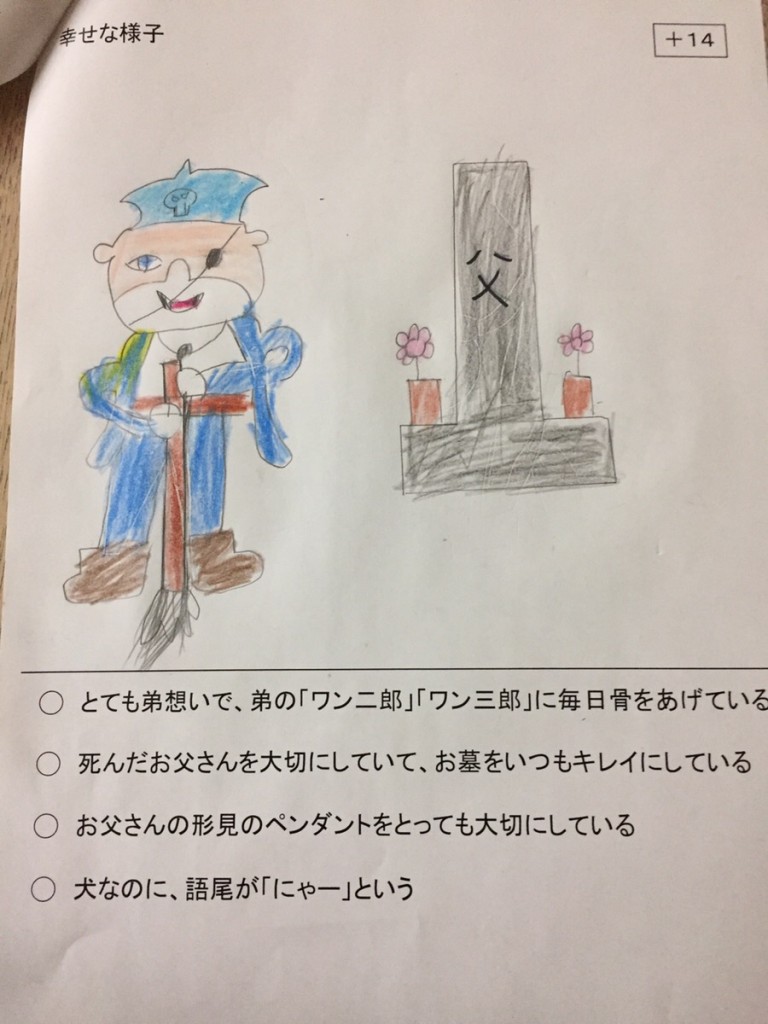 幸せな様子
+14
父
○ とても弟想いで、弟の「ワン二郎」「ワン三郎」に毎日骨をあげている
○ 死んだお父さんを大切にしていて、お墓をいつもキレイにしている
○ お父さんの形見のペンダントをとっても大切にしている
○ 犬なのに、語尾が「にゃー」という